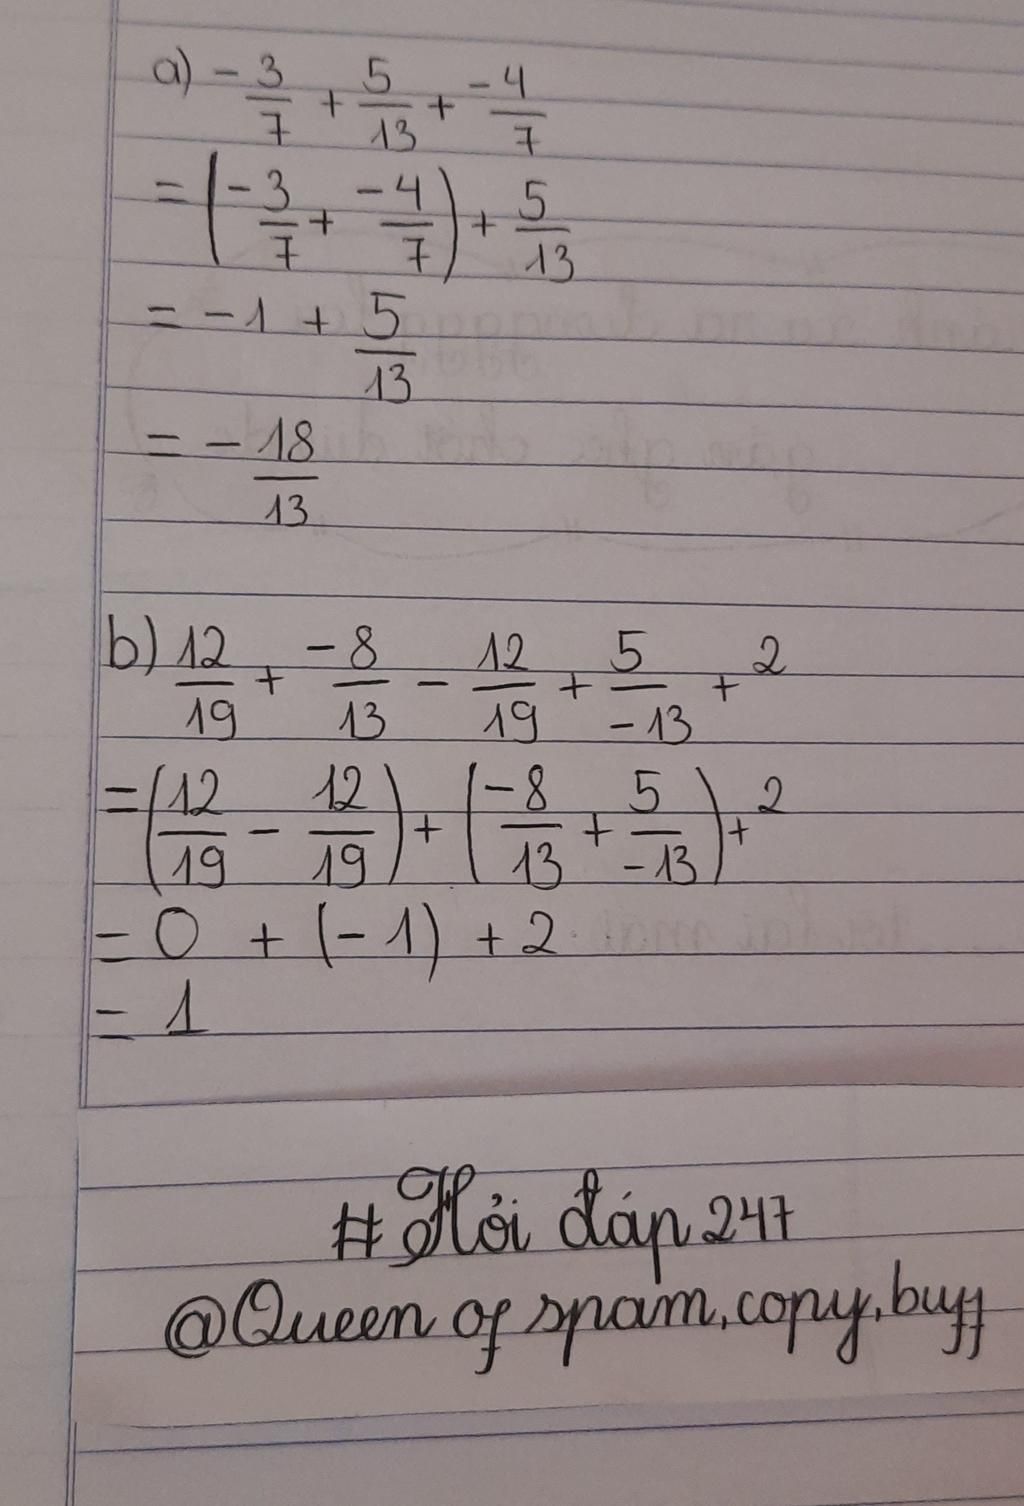 a) -3/7 + 5/13 + -4/7
= (-3/7 + -4/7) + 5/13
= -1 + 5/13
= -18/13
b) 12/19 + -8/13 - 12/19 + 5/-13 + 2
= (12/19 - 12/19) + (-8/13 + 5/-13) + 2
= 0 + (-1) + 2
= 1
# Hỏi đáp 247
@Queen of spam, copy, buff